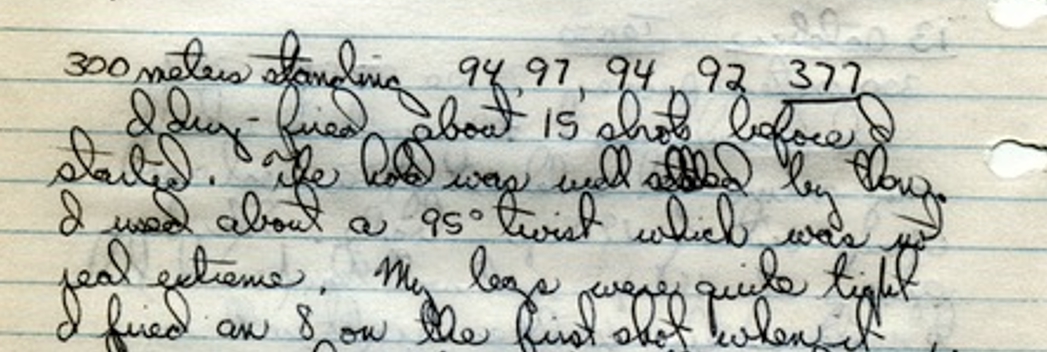 300 meters standing 94, 97, 94, 92 377
I dry-fired about 15 shots before I
started. The hold was well settled by then.
I used about a 95° twist which was not
real extreme. My legs were quite tight
I fired an 8 on the first shot when it